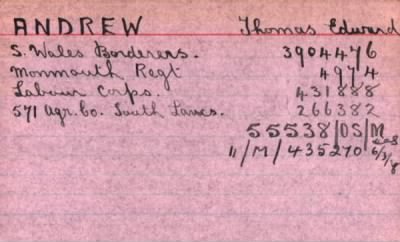 ANDREW Thomas Edward
S. Wales Borderers. 3904476
Monmouth Regt 4974
Labour Corps. 431888
571 Agr. Co. South Lancs. 266382
55538/OS/M
"/M/435270 6/3/